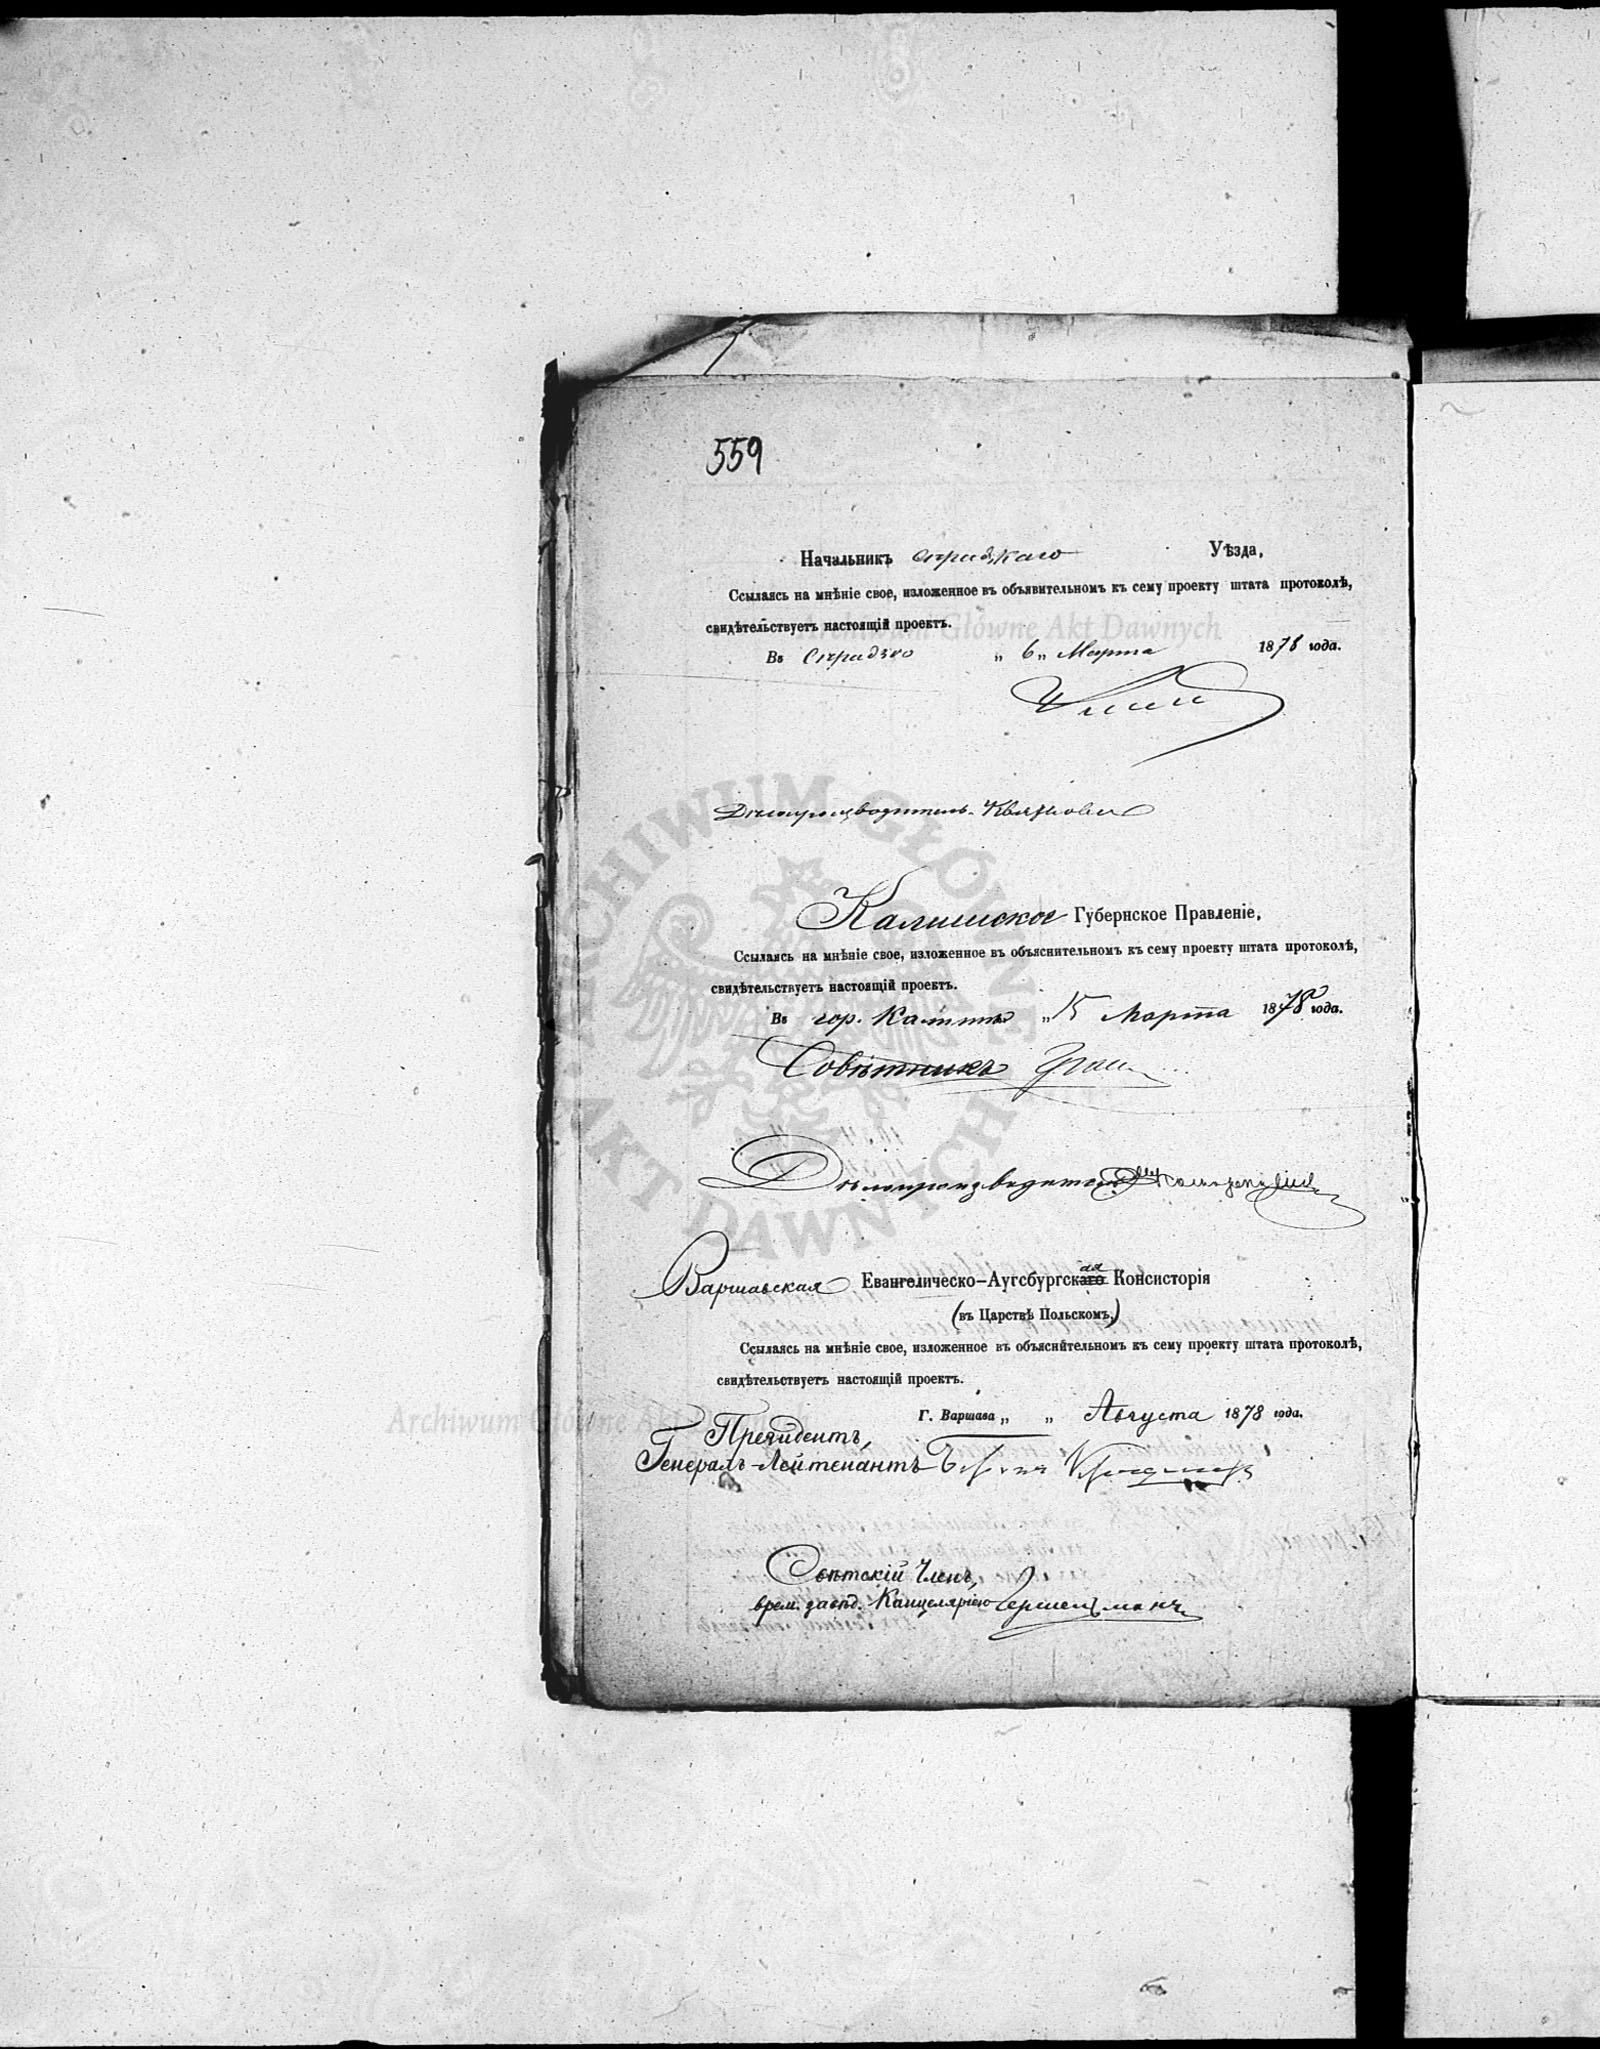 559
Начальникъ Сѣрадзкаго Уѣзда,
Ссылаясь на мнѣніе свое, изложенное въ объявительномъ къ сему проекту штата протоколѣ,
свидѣтельствуетъ настоящій проектъ.
Archiwum Główne Akt Dawnych
Въ Сѣрадзѣ „ 6 „ Марта 1878 года.
Дѣлопроизводитель
ARCHIWUM GŁÓWNE AKT DAWNYCH
Калишское Губернское Правленіе,
Ссылаясь на мнѣніе свое, изложенное въ объяснительномъ къ сему проекту штата протоколѣ,
свидѣтельствуетъ настоящій проектъ.
Въ гор. Калишѣ „ 15 Марта 1878 года.
Совѣтникъ
Дѣлопроизводитель
Варшавская Евангелическо-Аугсбургская Консисторія
(въ Царствѣ Польскомъ,)
Ссылаясь на мнѣніе свое, изложенное въ объяснительномъ къ сему проекту штата протоколѣ,
свидѣтельствуетъ настоящій проектъ.
Г. Варшава „ „ Августа 1878 года.
Archiwum Główne Akt Dawnych
Президентъ,
Генералъ-Лейтенантъ
Свѣтскій Членъ,
врем. завѣд. Канцеляріею Гершельманъ